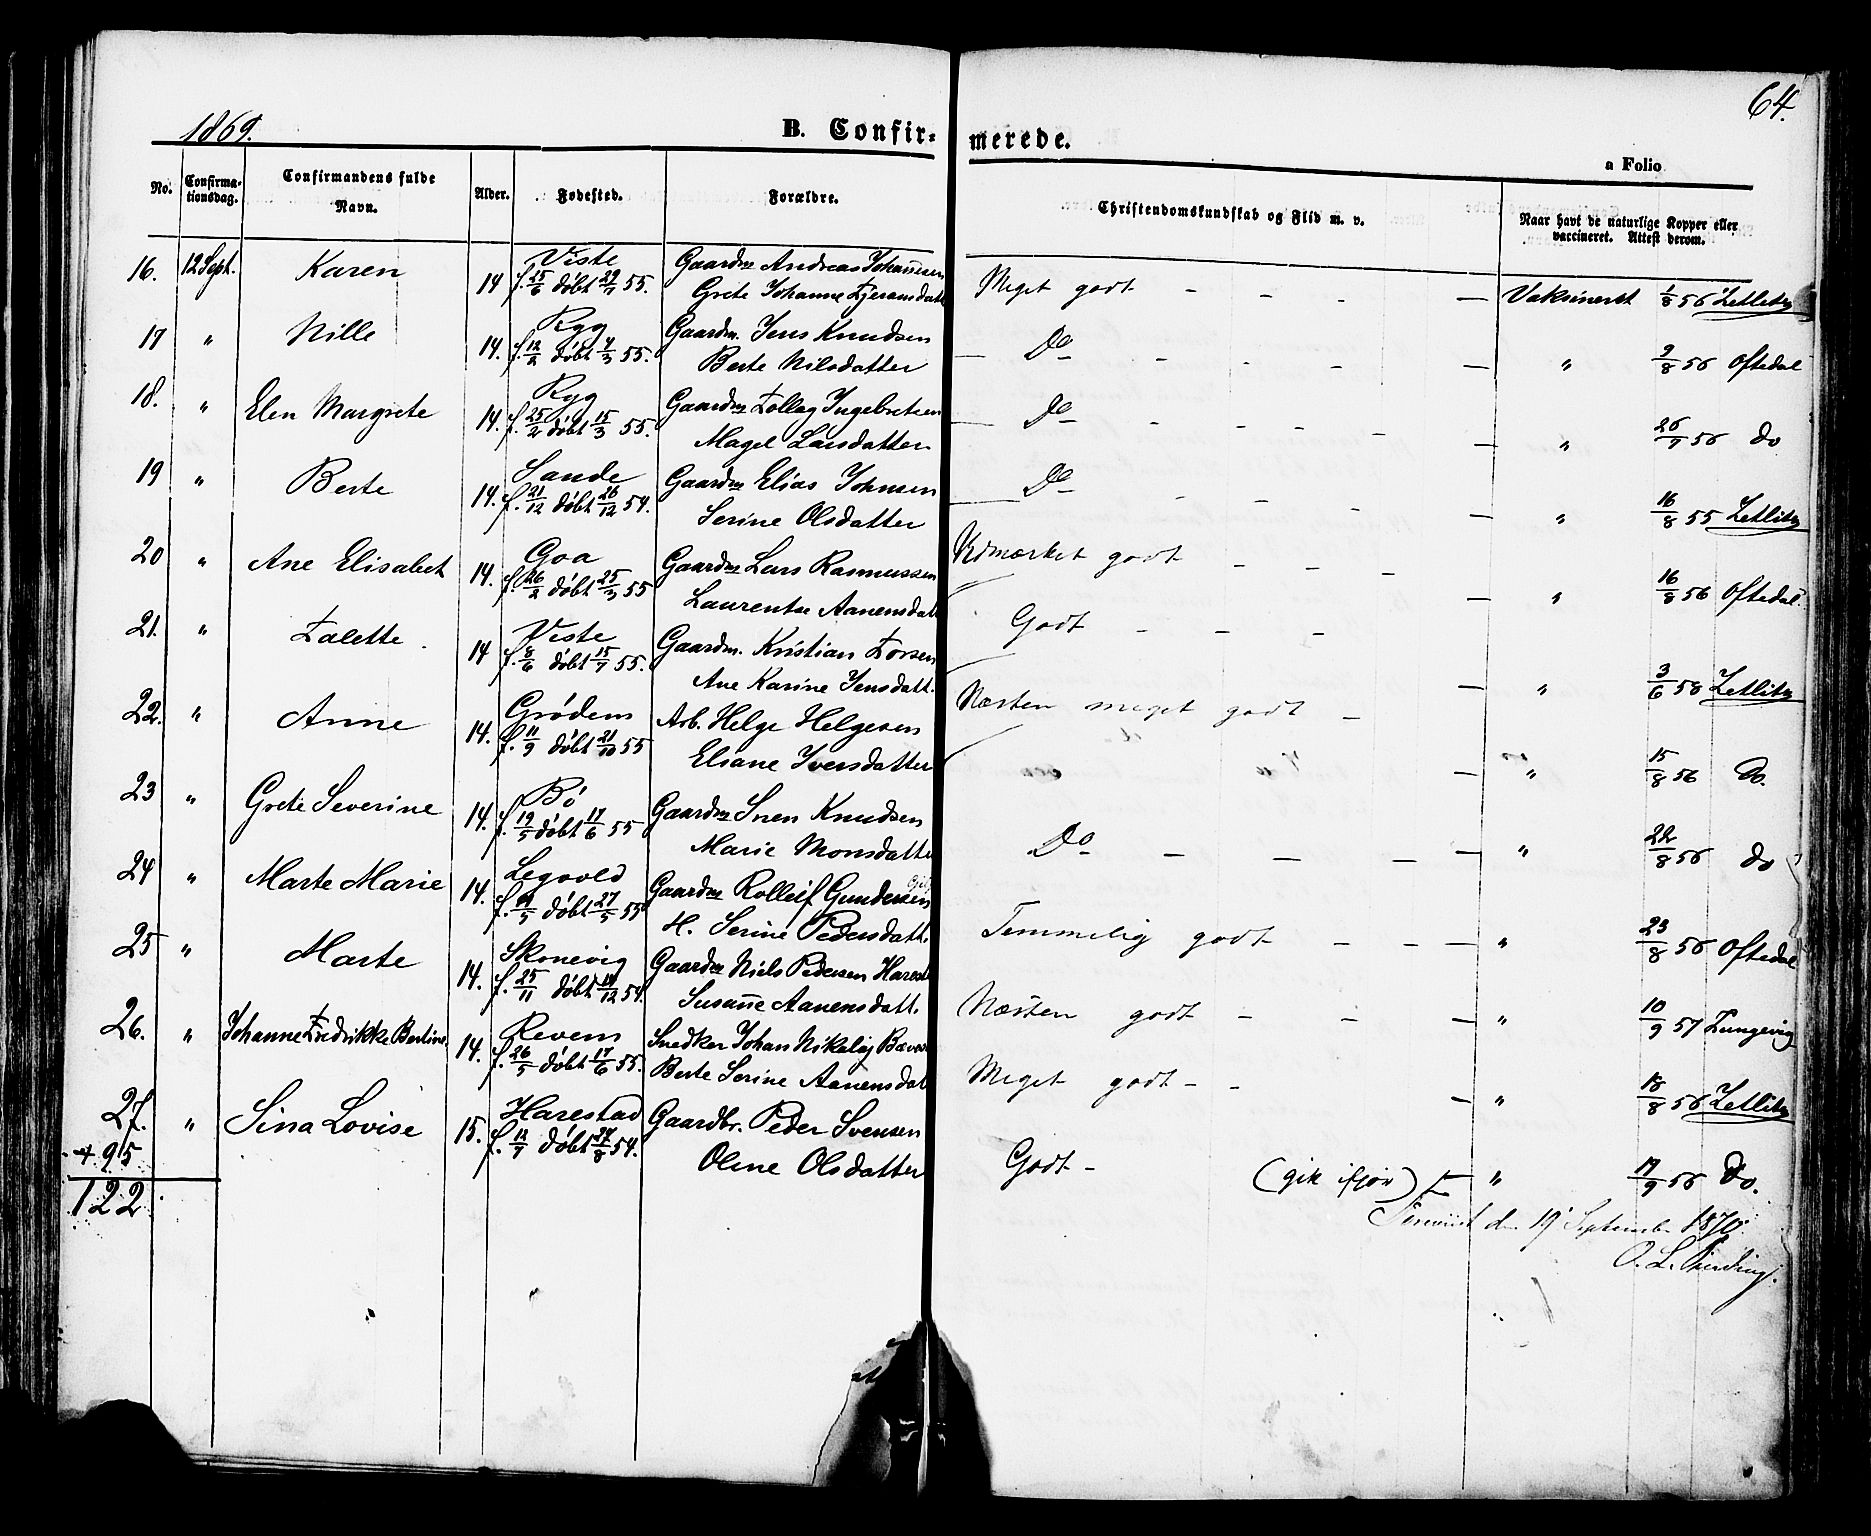 1869.
B. Confir-
merede.
64.
a Folio
No.
Confirma-
tionsdag.
Confirmandens fulde
Navn.
Alder.
Fødested.
Forældre.
Christendomskundskab og Flid m. v.
Naar havt de naturlige Kopper eller
vaccineret. Attest derom.
16. 12 Sept. Karen 14 Viste Gaardm Andreas Johannesen
f. 25/6 døbt 29/7 55. Grete Johanne
Meget godt - - - - Vaksineret 1/8 56 Zetlitz
17 " Nille 14. Ryg Gaardm. Jens Knudsen
f. 12/2 døbt 4/3 55. Berte Nilsdatter
- Do - - - - " 9/8 56 Oftedal
18. " Elen Margrete 14. Ryg Gaardm Tollag Ingebretsen
f. 25/2 døbt 15/3 55. Magel Larsdatter
- Do - - - - - " 26/7 56 do
19 " Berte 14. Sande Gaardm Elias Johnsen
f. 21/12 døbt 26/12 54. Serine Olsdatter
- Do - - - - " 16/8 55 Zetlitz
20 " Ane Elisabet 14. Goa Gaardm Lars Rasmussen
f. 26/2 døbt 25/3 55 Laurentse Aanensdatt
Udmærket godt - - - - " 16/8 56 Oftedal
21. " Talette 14 Viste Gaardm. Kristian Torsen
f. 8/6 døbt 15/7 55. Ane Karine Jensdatt.
Godt - - - - " 3/6 58 Zetlitz
22. " Anne 14. Grødem Arb. Helge Helgesen
f. 11/9 døbt 21/10 55 Eliane Iversdatter
Næsten meget godt - - " 15/8 56 do.
23 " Grete Severine 14. Bø Gaardm Sven Knudsen
f. 19/5 døbt 17/6 55 Marie Monsdatte
Do - - - - " 22/8 56 do
24 " Marte Marie 14. Gaardm Rolleif Gundersen
døbt 27/5 55 H. Serine Pedersdatt.
Temmelig godt - - - " 23/8 56 Oftedal
25 " Marte 14. Skonevig Gaardm Niels Pedersen Harest
f. 25/11 døbt 54. Susanne Aanensdatt.
Næsten godt - - - " 10/9 57 Tungevig
26. " Johanne Fredrikke Bertine 14. Revem Snedker Johan Nikolaj
f. 26/5 døbt 17/6 55. Berte Serine Aanensdat
Meget godt - - - " 18/8 56 Zetlitz
27. " Sina Lovise 15. Harestad Gaardbr. Peder Svensen
f. 12/7 døbt 27/8 54. Oline Olsdatter
Godt - (gik ifjor) - " 17/9 56 Do.
+ 95
122
den 19 September 1870.
O. L.